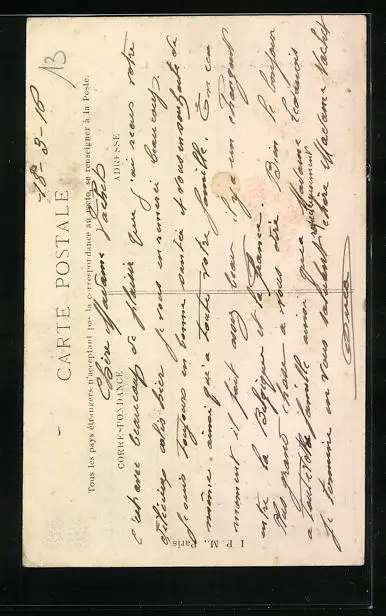 13
15-3-18
CARTE POSTALE
Tous les pays étrangers n'acceptant pas la correspondance au recto, se renseigner à la Poste.
CORRESPONDANCE
ADRESSE
Chère Madame Vachet
C'est avec beaucoup de plaisir que j'ai reçus votre
colis hier je vous en remerci beaucoup,
je suis toujours en bonne santé et vous en souhaite de
même ainsi qu'a toute votre famille. En ce
moment il fait assez beau il y a un changement
entre la Belgique et la France.
Plus grand chose a vous dire. Bien le bonjour
a toute votre famille ainsi que Madame
respectueusement
je termine en vous saluant chère Madame Vachet
I. P. M., Paris